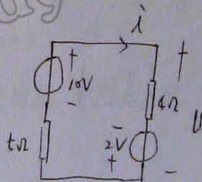 i
+
+
10V
4Ω
-
U
-
2V
+
-